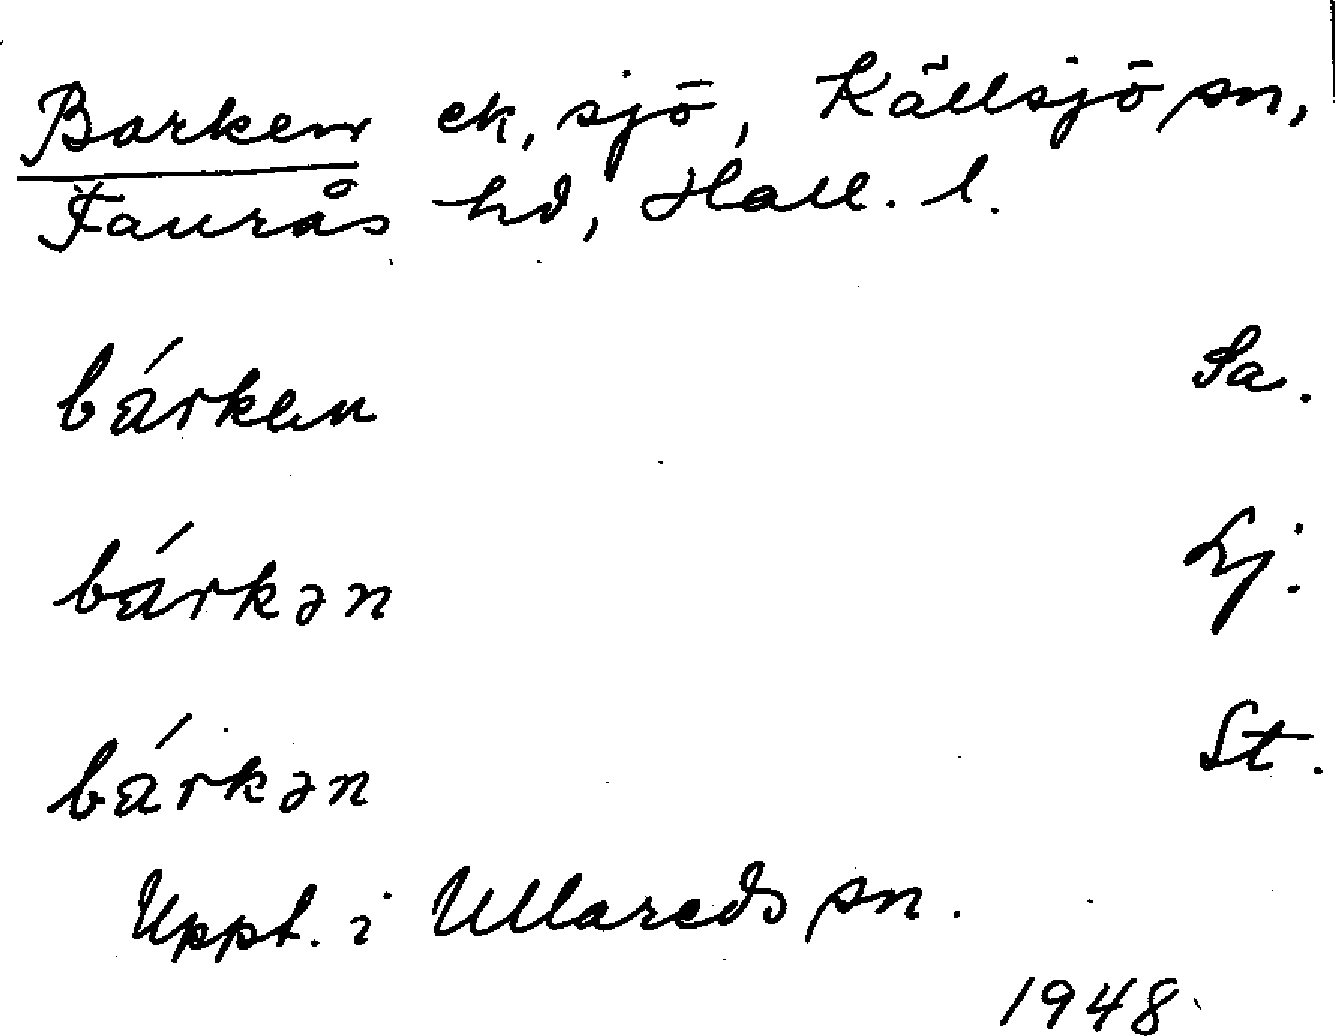 Barken ek, sjö, Källsjö sn,
Faurås hd, Hall. l.
bárken Sa.
bárkən Lj.
bárkən St.
Uppt. i Ullareds sn.
1948